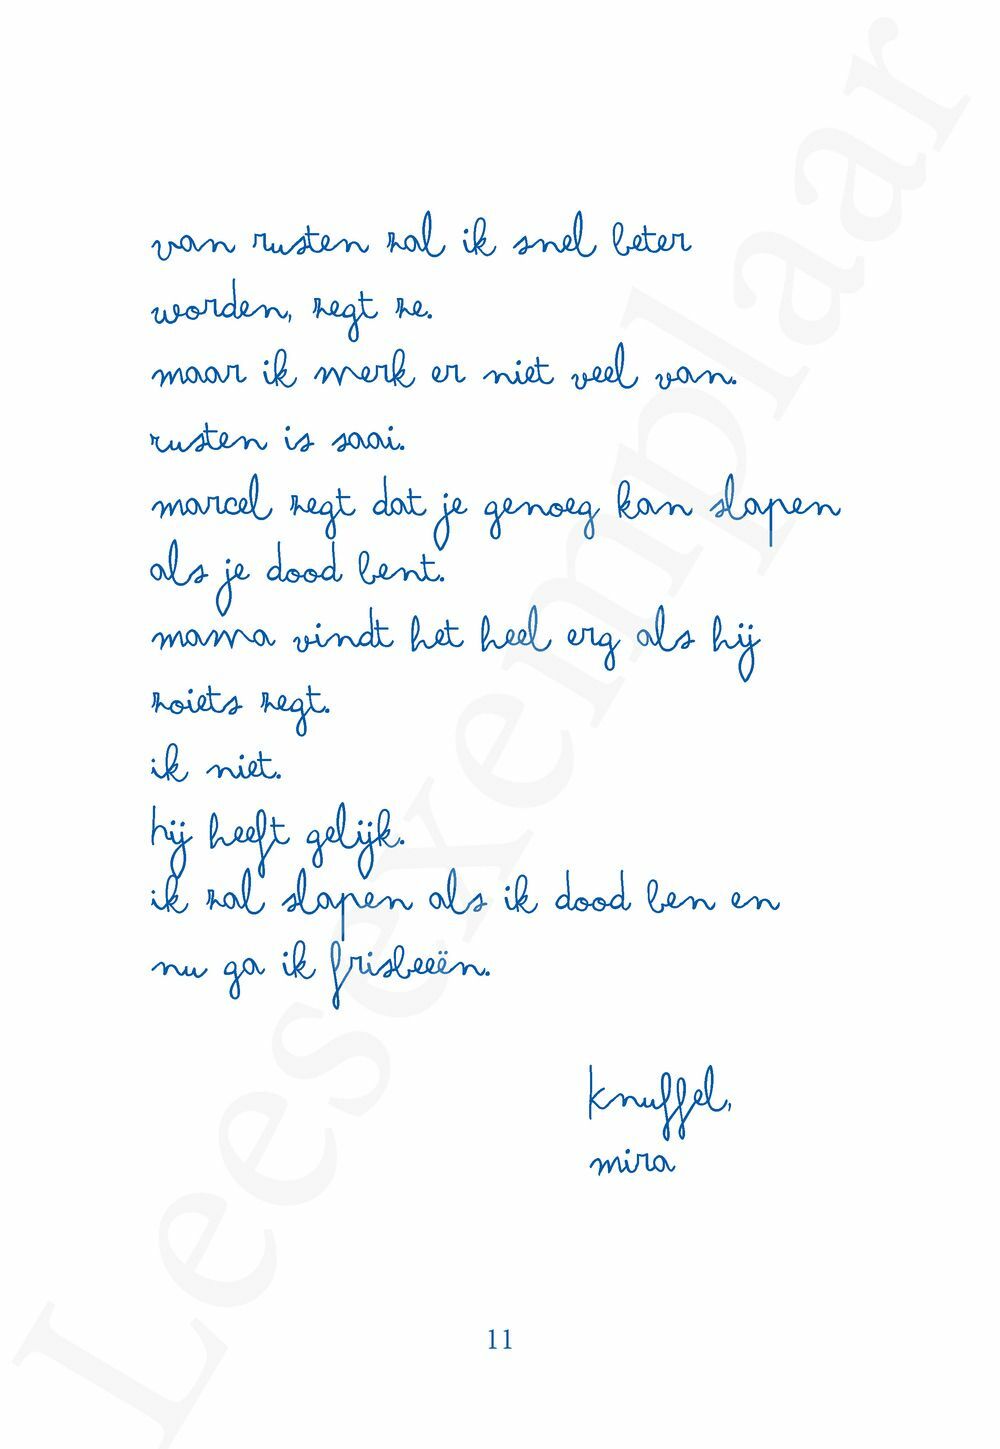 van rusten zal ik snel beter
worden, zegt ze.
maar ik merk er niet veel van.
rusten is saai.
marcel zegt dat je genoeg kan slapen
als je dood bent.
mama vindt het heel erg als hij
zoiets zegt.
ik niet.
hij heeft gelijk.
ik zal slapen als ik dood ben en
nu ga ik frisbeeën.
knuffel,
mira
11
Leesexemplaar